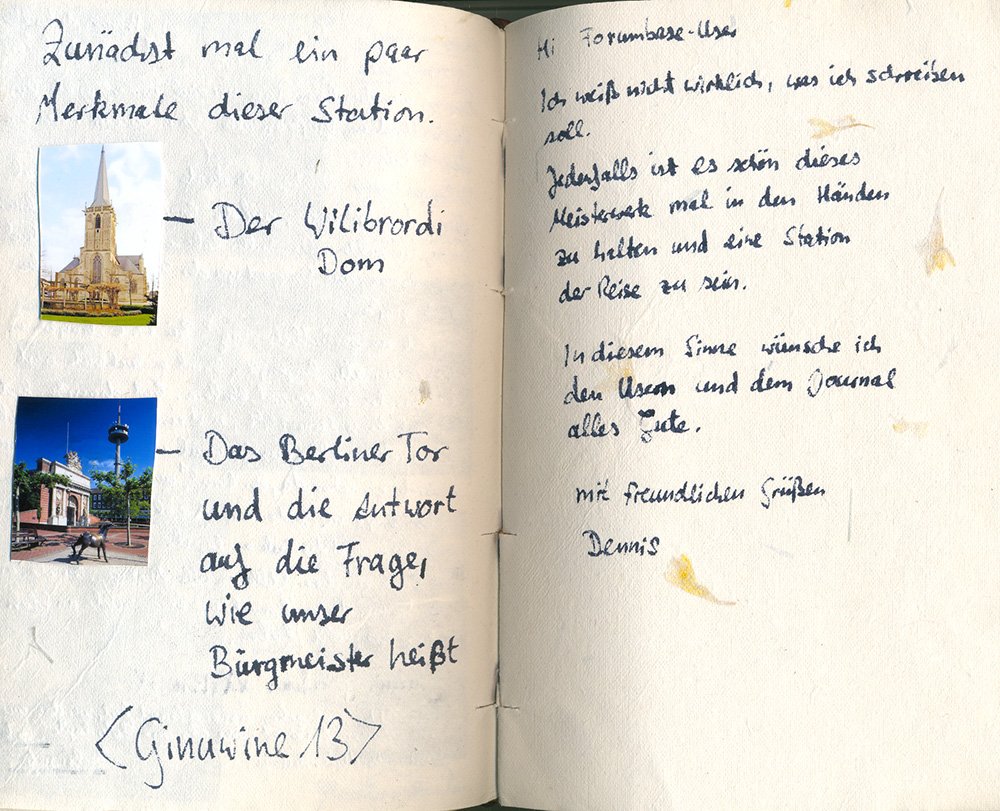 Zunächst mal ein paar
Merkmale dieser Station.
– Der Wilibrordi
Dom
– Das Berliner Tor
und die Antwort
auf die Frage,
wie unser
Bürgmeister heißt
<Ginuwine 13>
Hi Forumbase-User
Ich weiß nicht wirklich, was ich schreiben
soll.
Jedenfalls ist es schön dieses
Meisterwerk mal in den Händen
zu halten und eine Station
der Reise zu sein.
In diesem Sinne wünsche ich
den Usern und dem Journal
alles Gute.
mit freundlichen Grüßen
Dennis